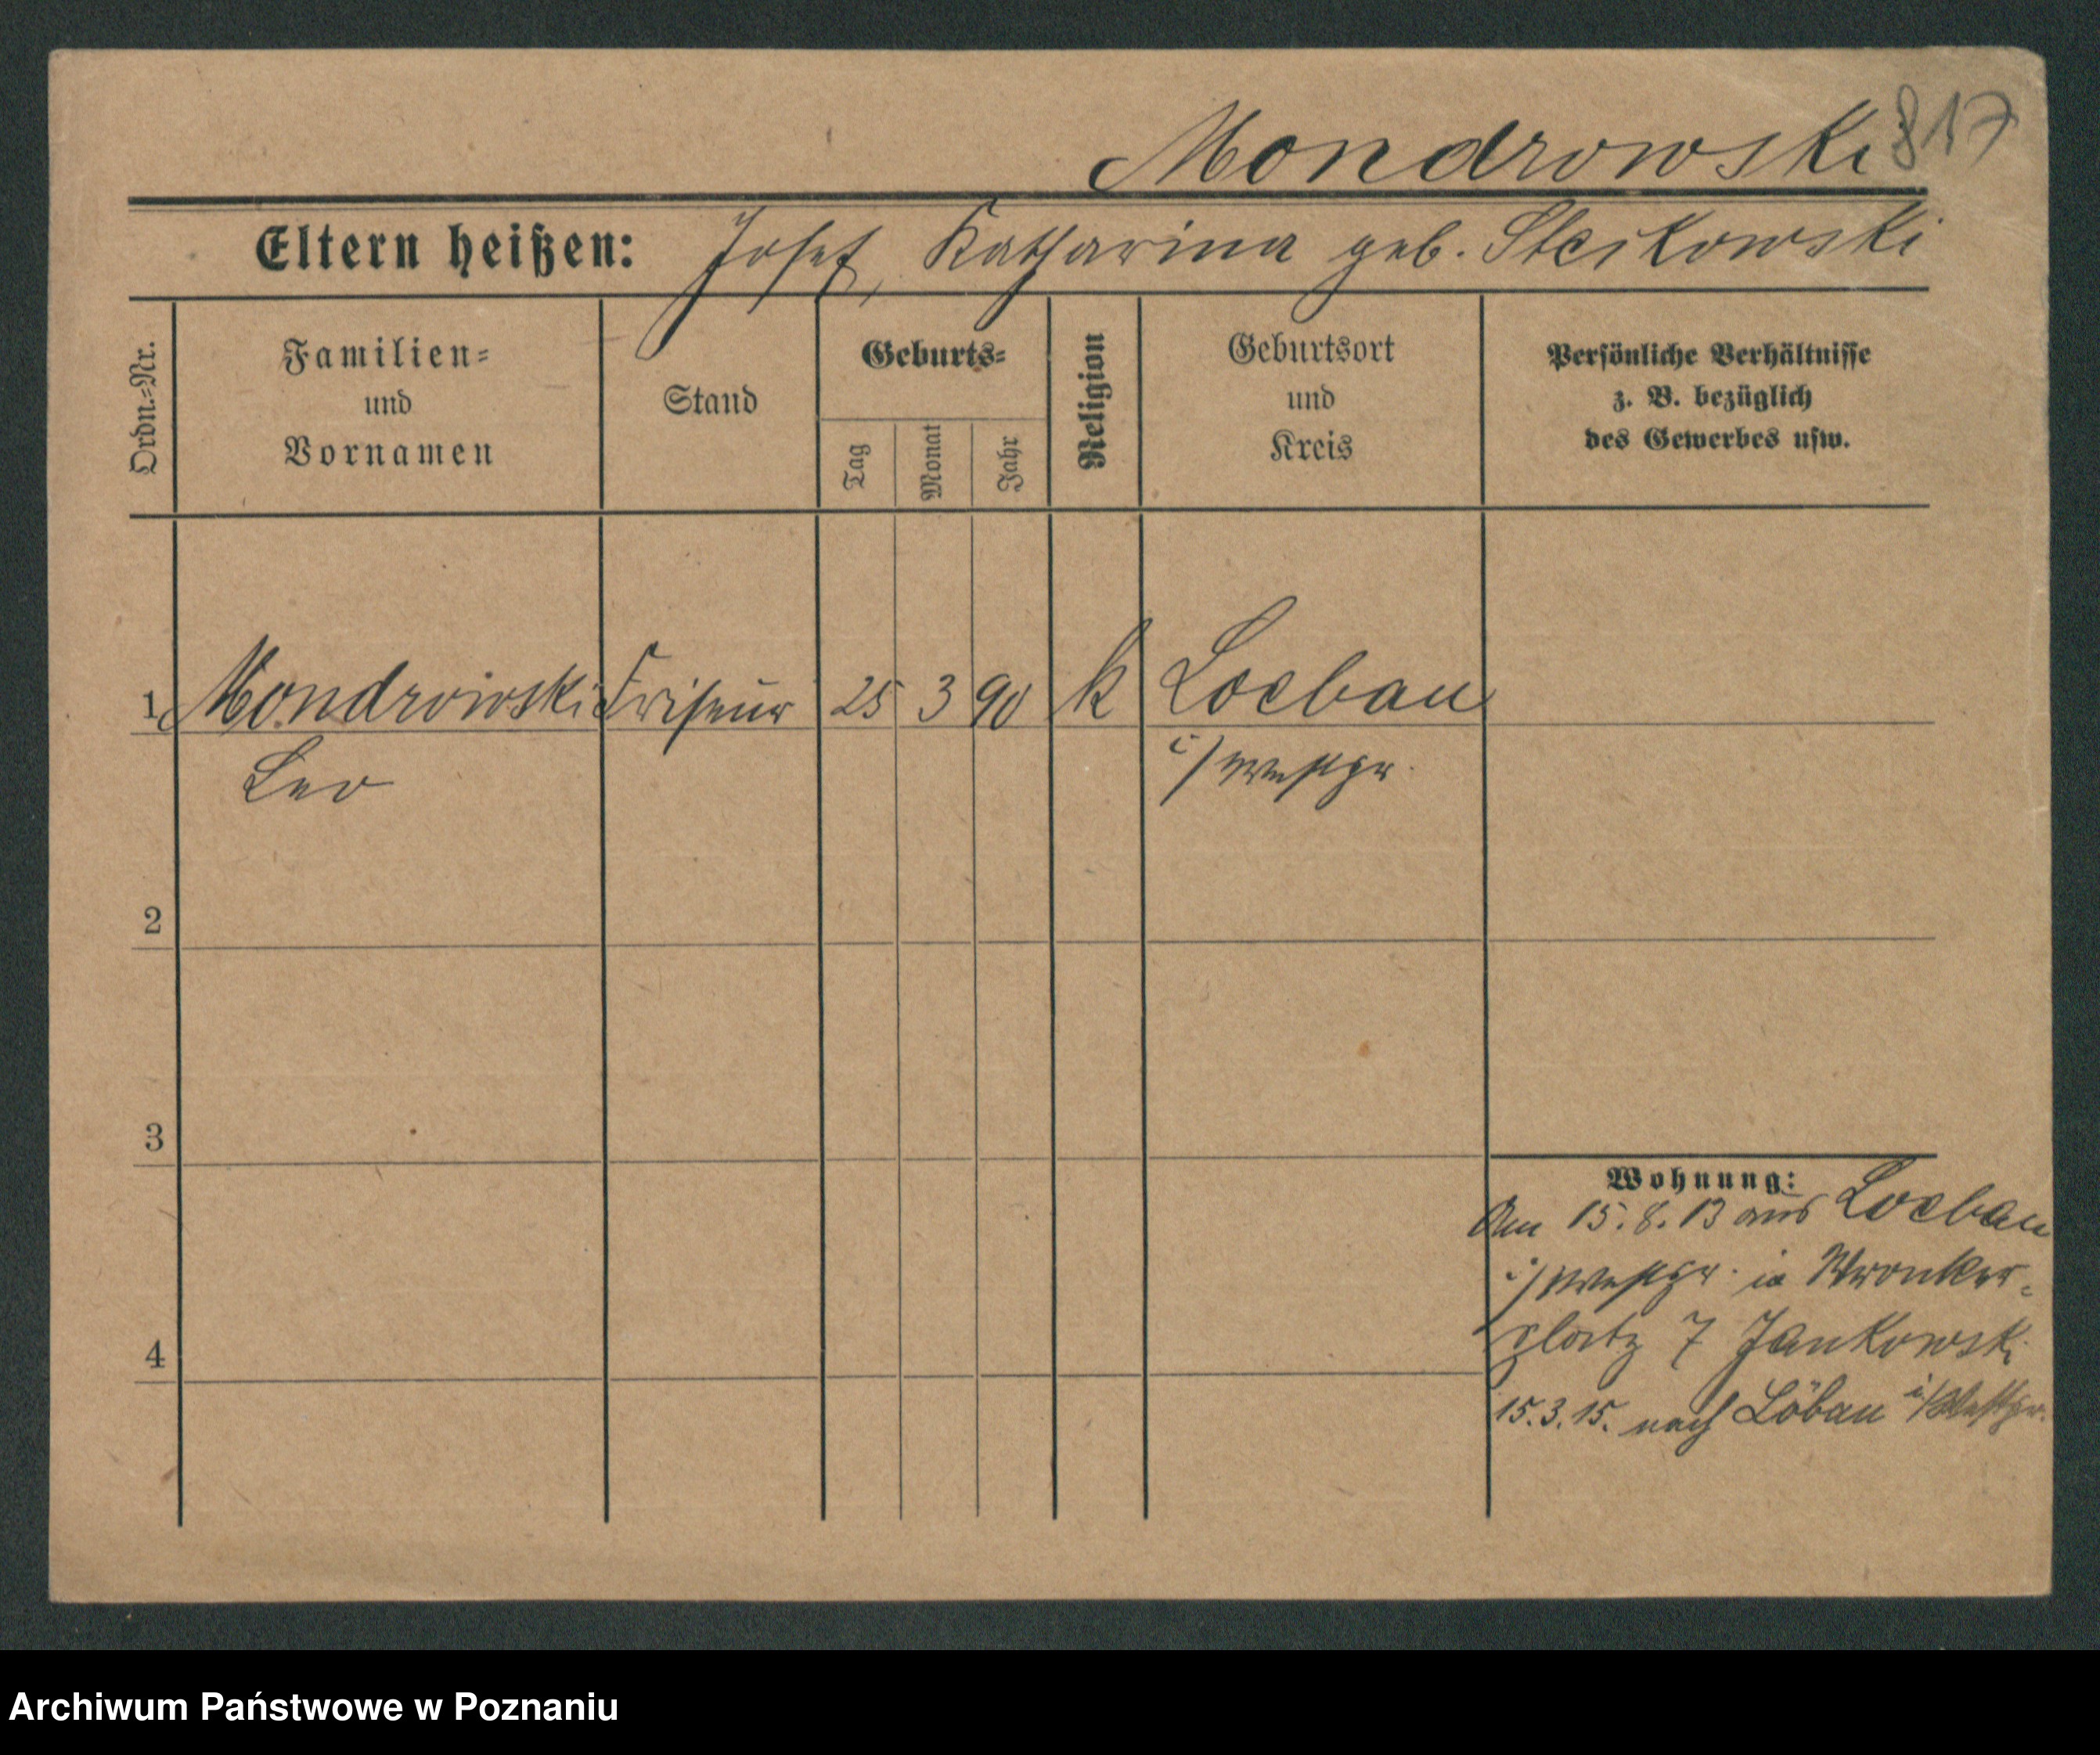 Mondrowski 817
Eltern heißen: Josef, Katharina geb. Steikowski
Ordn.=Nr.
Familien=
und
Vornamen
Stand
Geburts=
Tag
Monat
Jahr
Religion
Geburtsort
und
Kreis
Persönliche Verhältnisse
z. B. bezüglich
des Gewerbes usw.
1 Mondrowski Friseur 25 3 90 k Loebau
Leo i/Westpr.
2
3
4
Wohnung:
Am 15.8.13 aus Loebau
i/Westpr. in Wronker-
platz 7 Jankowski
15.3.15. nach Löbau i/Westpr.
Archiwum Państwowe w Poznaniu